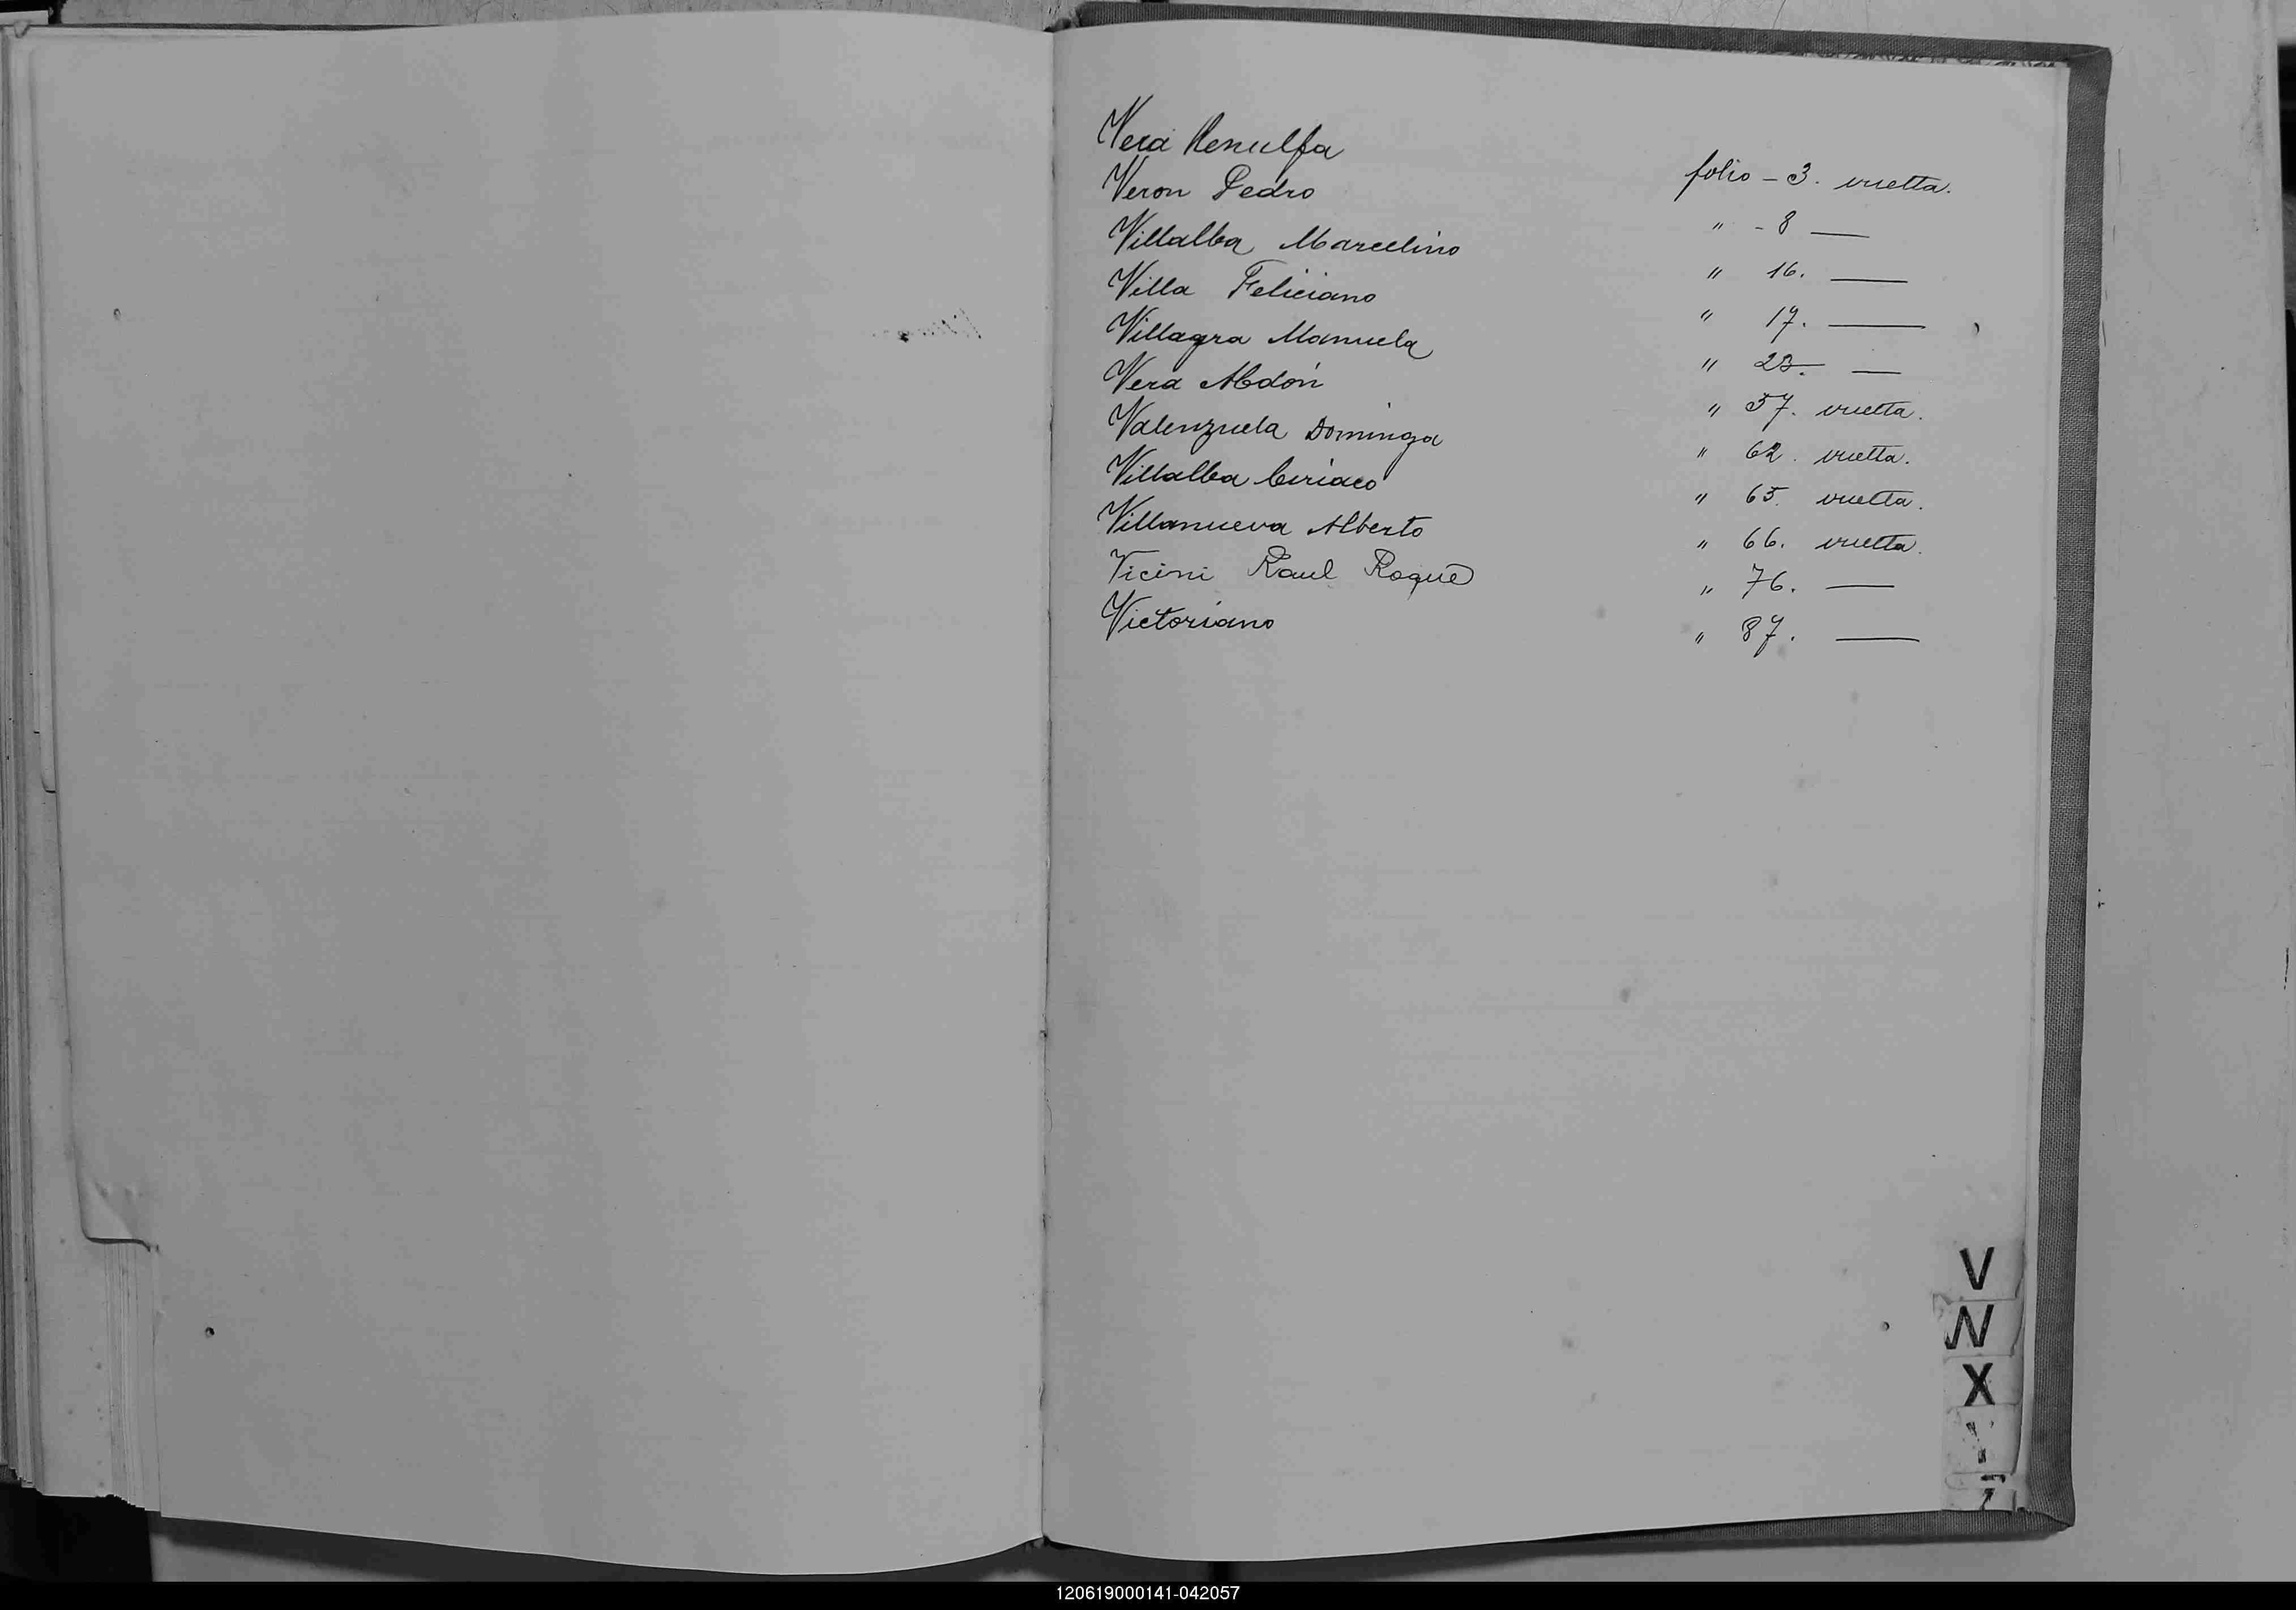 Vera Renulfa folio - 3. vuelta.
Veron Pedro " - 8 —
Villalba Marcelino " 16. —
Villa Feliciano " 17. —
Villagra Manuela " 23. —
Vera Abdón " 57. vuelta.
Valenzuela Dominga " 62. vuelta.
Villalba Ciriaco " 65. vuelta.
Villanueva Alberto " 66. vuelta.
Vicini Raul Roque " 76. —
Victoriano " 87. —
V
W
X
120619000141-042057